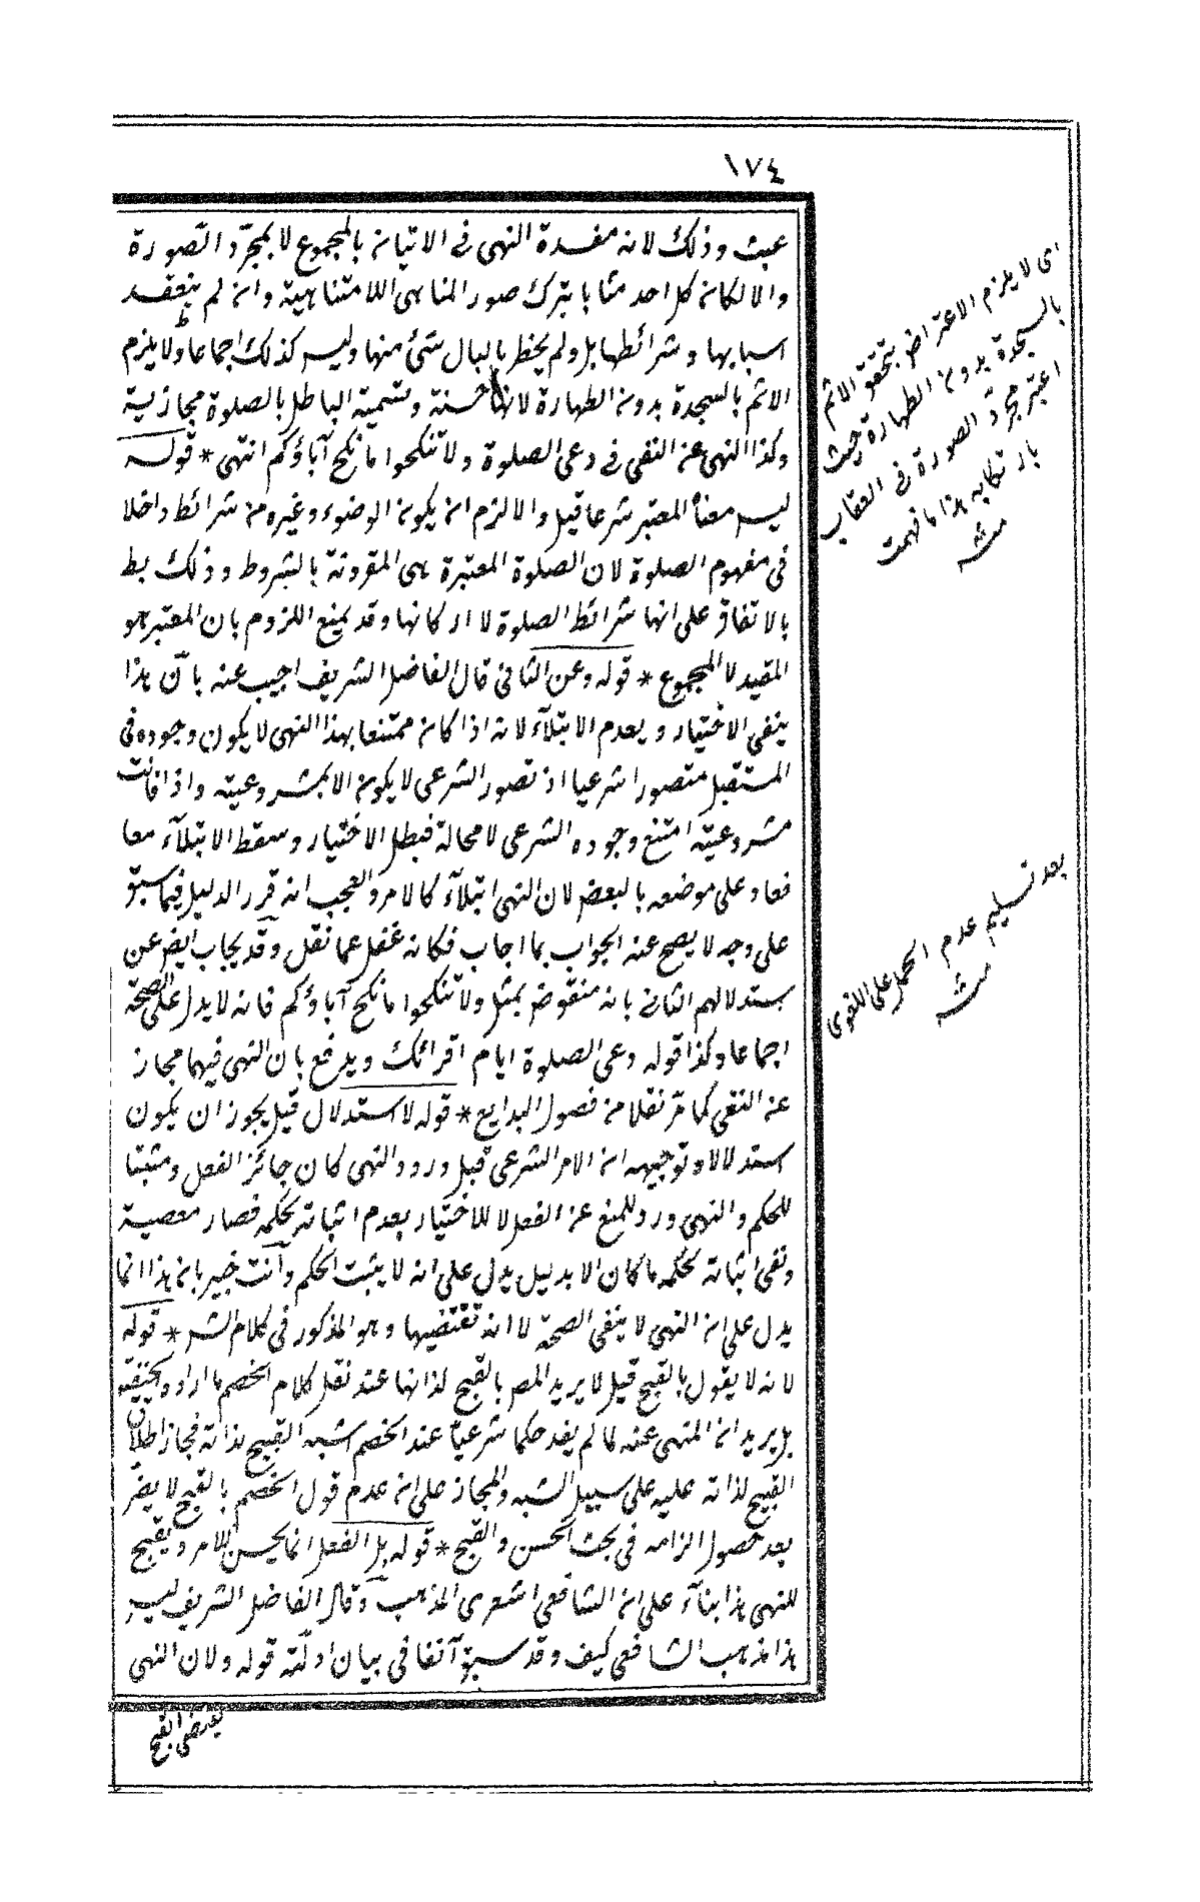 ١٧٤
عبث وذلك لانه مفسدة النهى فى الاتيان بالمجموع لا بمجرّد الصّورة
والا لكان كل احد مثابا بترك صور المناهى اللامتناهية وان لم ينعقد
اسبابها وشرائطها بل ولم يخطر بالبال شئ منها وليس كذلك اجماعا ولا يلزم
الاثم بالسجدة بدون الطهارة لانها حسنة وتسمية الباطل بالصلوة مجازية
وكذا النهى عن النفى فى دعى الصلوة ولا تنكحوا ما نكح آباؤكم انتهى * قوله
ليس معناه المعتبر شرعا قيل والا لزم ان يكون الوضوء وغيره من شرائط داخلا
فى مفهوم الصلوة لان الصلوة المعتبرة هى المقرونة بالشروط وذلك بط
بالاتفاق على انها شرائط الصلوة لا اركانها وقد يمنع اللزوم بان المعتبر هو
المقيد لا المجموع * قوله وعن الثانى قال الفاضل الشريف اجيب عنه بانّ هذا
ينفى الاختيار ويعدم الابتلآء لانه اذا كان ممتنعا بهذا النهى لا يكون وجوده فى
المستقبل متصورا شرعيا اذ تصور الشرعى لا يكون الا بمشروعيته واذا فاتت
مشروعيته امتنع وجوده الشرعى لا محالة فبطل الاختيار وسقط الابتلآء معا
فعاد على موضعه بالبعض لان النهى ابتلآء كالامر والعجب انه قرر الدليل فيما سبق
على وجه لا يصح عنه الجواب بما اجاب فكانه غفل عما نقل وقد يجاب ايض عن
استدلالهم الثانى بانه منقوض بمثل ولا تنكحوا ما نكح آباؤكم فانه لا يدل على الصحّة
اجماعا وكذا قوله دعى الصلوة ايام اقرائك ويدفع بان النهى فيهما مجاز
عن النفى كما مرّ نقلا من فصول البدايع * قوله لاستدلال قيل يجوز ان يكون
استدلالا وتوجيهه ان الامر الشرعى قبل ورود النهى كان جائز الفعل ومثبتا
للحكم والنهى ورد للمنع عن الفعل لا للاختيار بعدم اثباته لحكمه فصار معصية
ونفى اثباته لحكمه ما كان الا بدليل يدل على انه لا يثبت الحكم وانت خبير بان هذا انما
يدل على ان النهى لا ينفى الصحّة لا انه تقتضيها وهو المذكور فى كلام الش * قوله
لانه لا يقول بالقبح قيل لا يريد المص بالقبح لذاتها عند نقل كلام الخصم ما اراد
بل يريد ان المنهى عنه لما لم يفد حكما شرعيّا عند الخصم اشبه القبيح لذاته فجاز اطلاق
القبيح لذاته عليه على سبيل الشبه والمجاز على ان عدم قول الخصم بالقبح لا يضر
بعد حصول الزامه فى بحث الحسن والقبح * قوله بل الفعل انما يحسن للامر ويقبح
للنهى هذا بنآء على ان الشافعى اشعرى المذهب وقال الفاضل الشريف ليس
هذا مذهب الشافعى كيف وقد سبق آنفا فى بيان ادلّته قوله ولان النهى
يقتضى القبح
اى لا يلزم الاعتراض بتحقق الاثم
بالسجدة بدون الطهارة حيث
اعتبر مجرّد الصورة فى العقاب
بارتكابه هذا ما فهمت
منه
بعد تسليم عدم الحمل على اللغوى
منه